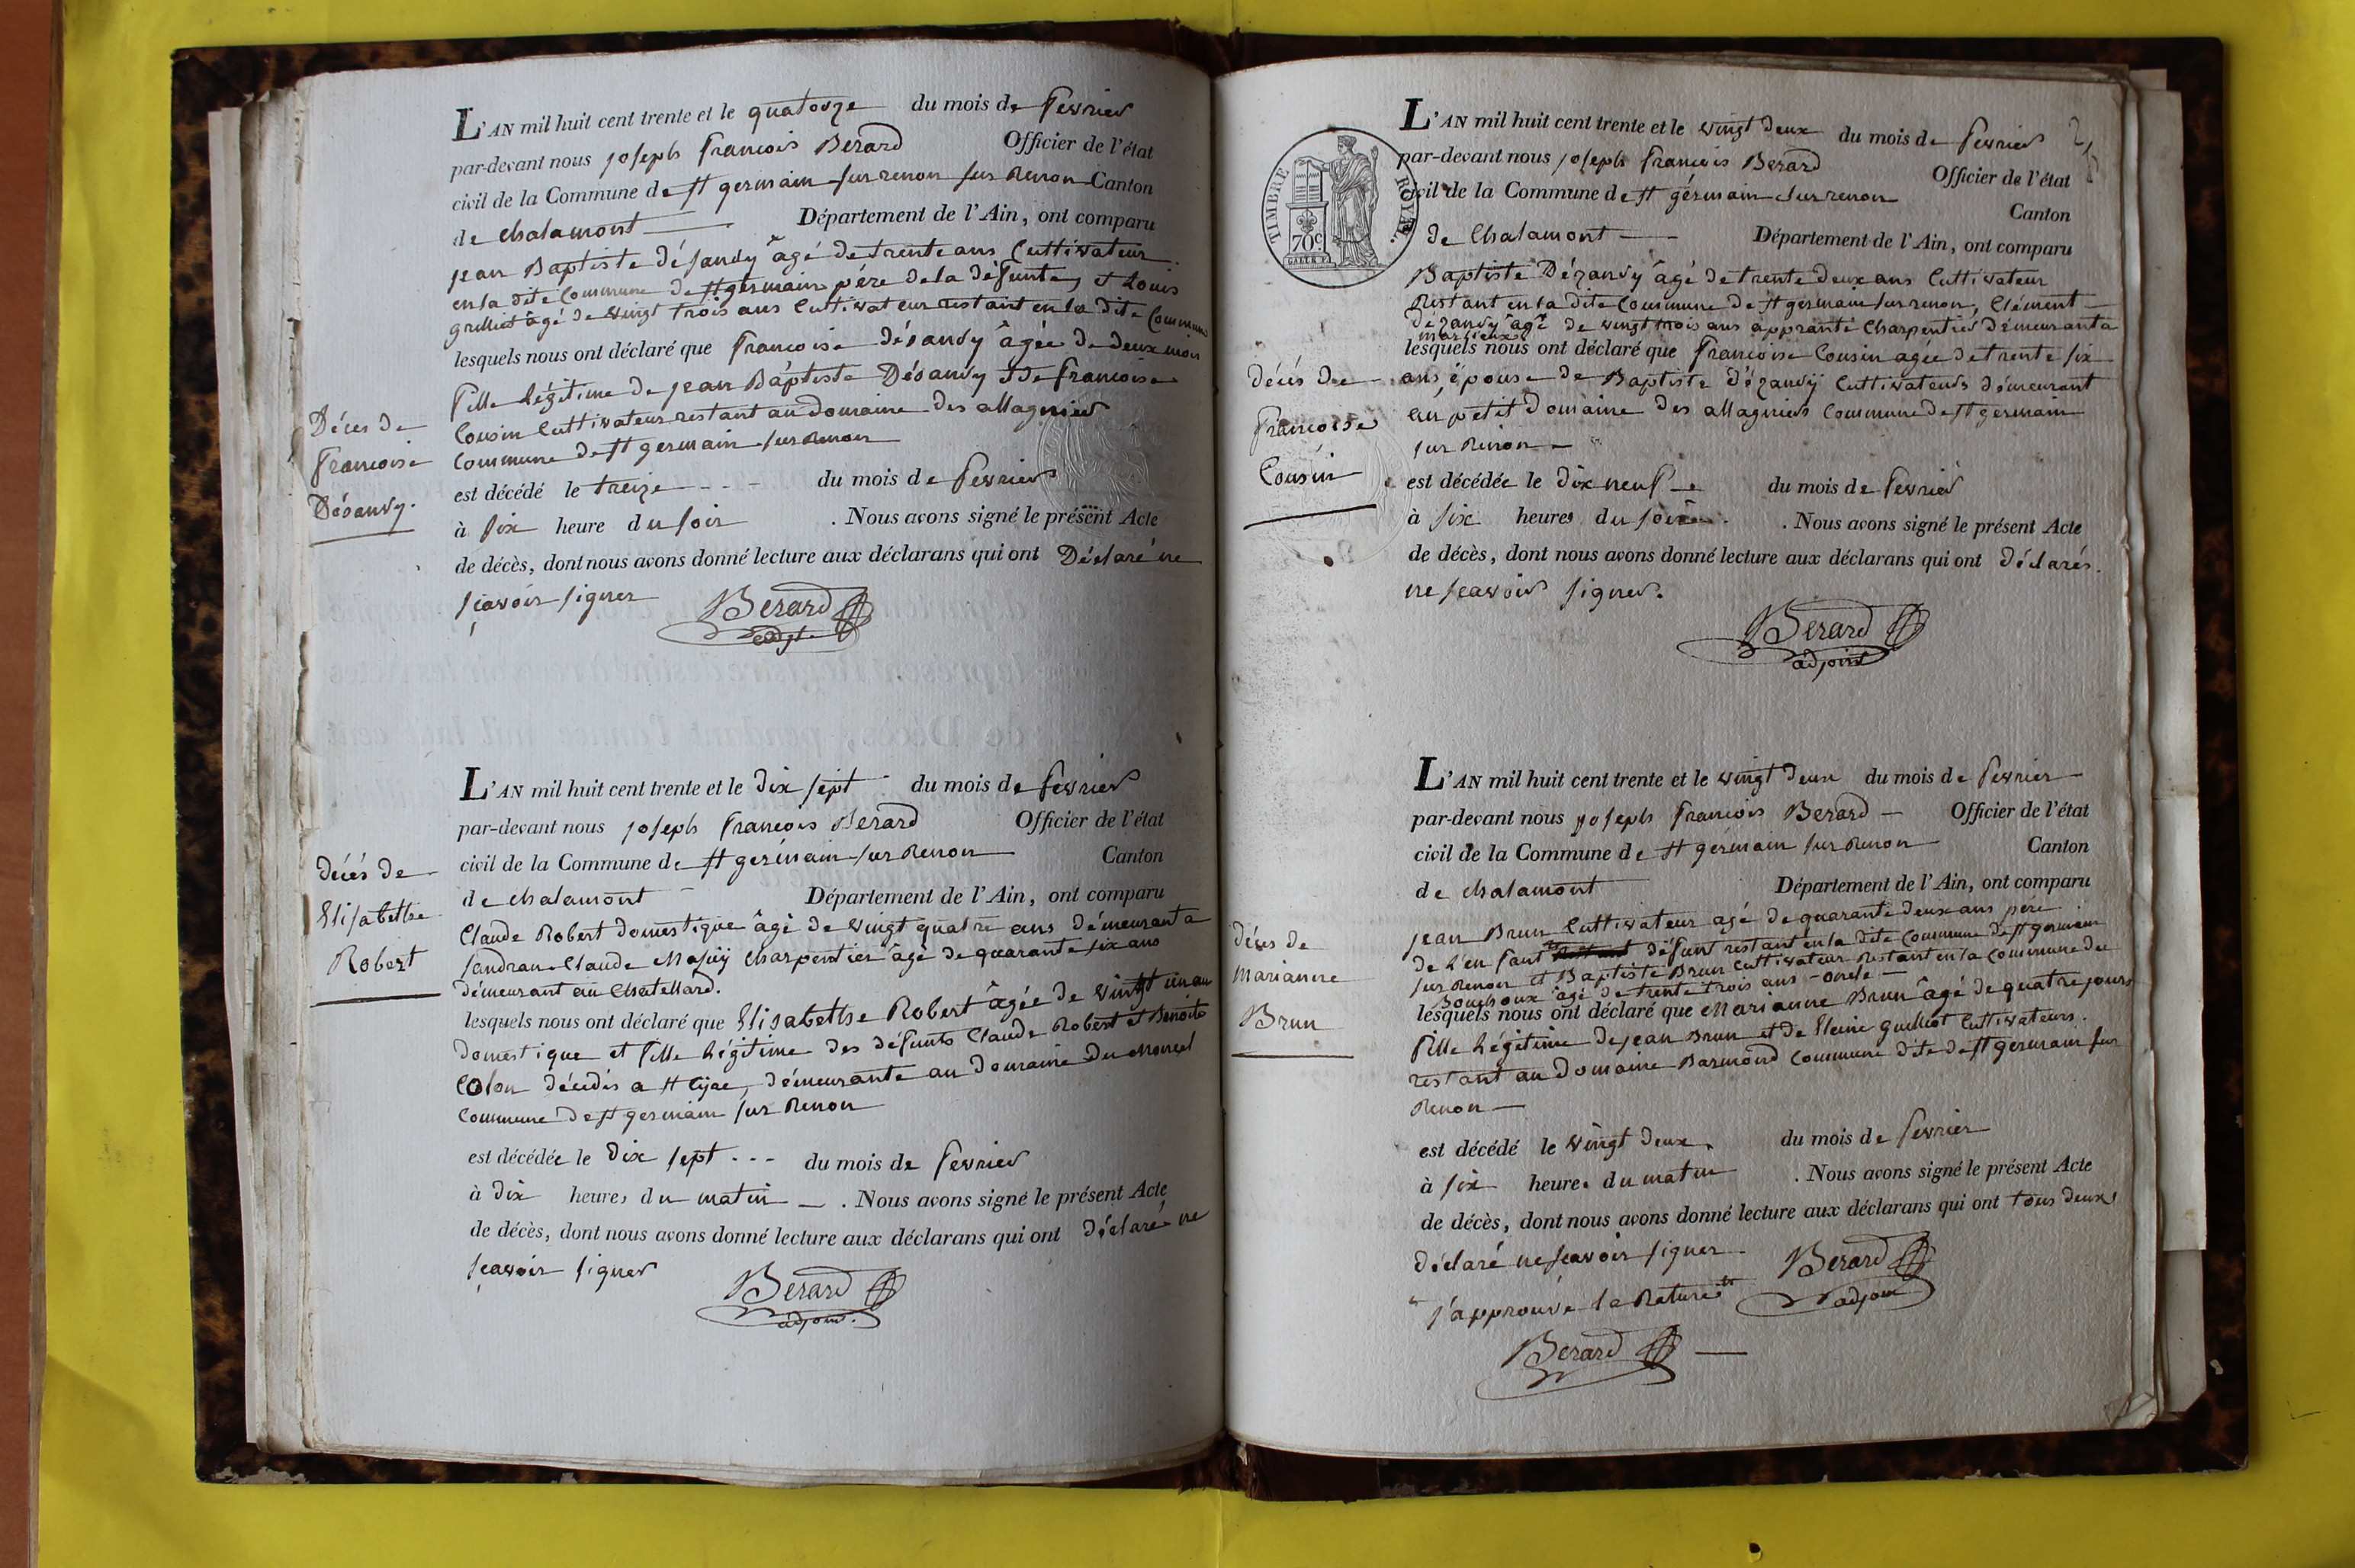 L'AN mil huit cent trente et le quatorze du mois de fevrier
par-devant nous joseph francois Berard Officier de l'état
civil de la Commune de st germain sur renon sur Renon Canton
de chalamont Département de l'Ain, ont comparu
jean Baptiste désandy âgé de trente ans Cultivateur
en la dite Commune de st germain père de la défunte, et Louis
grilliet âgé de vingt trois ans Cultivateur restant en la dite Commune
lesquels nous ont déclaré que francoise désandy âgée de deux mois
fille légitime de jean Baptiste Désandy et de francoise
Cousin Cultivateur restant au Domaine des allagnier
Commune de st germain sur Renon
est décédé le treize du mois de fevrier
à six heure du soir . Nous avons signé le présent Acte
de décès, dont nous avons donné lecture aux déclarans qui ont Déclaré ne
sçavoir signer Berard
adjt
Décès de
francoise
Désandy.
L'AN mil huit cent trente et le dix sept du mois de fevrier
par-devant nous joseph francois Berard Officier de l'état
civil de la Commune de st germain sur Renon Canton
de chalamont Département de l'Ain, ont comparu
Claude Robert domestique âgé de vingt quatre ans démeurant a
sandran Claude Charpentier âgé de quarante six ans
démeurant au Chatellard.
lesquels nous ont déclaré que Elisabethe Robert âgée de vingt un an
domestique et fille légitime des défunts Claude Robert et Benoite
Colon décédés a st démeurante au domaine du Moncel
Commune de st germain sur Renon
est décédée le dix sept du mois de fevrier
à dix heures du matin . Nous avons signé le présent Acte
de décès, dont nous avons donné lecture aux déclarans qui ont déclaré ne
sçavoir signer Berard
adjoint
décés de
Elisabethe
Robert
L'AN mil huit cent trente et le vingt deux du mois de fevrier
par-devant nous joseph francois Berard Officier de l'état
civil de la Commune de st gérmain sur renon Canton
de Chalamont Département de l'Ain, ont comparu
TIMBRE ROYAL.
70c
Baptiste Dézandy âgé de trente deux ans Cultivateur
Restant en la dite Commune de st germain sur renon, Clément
dézandy âgé de vingt trois ans appranti Charpentier démeurant a
marlieux
lesquels nous ont déclaré que francoise Cousin agée de trente six
ans, épouse de Baptiste dézandy Cultivateurs démeurant
au petit Domaine des allagniers Commune de st germain
sur Renon
est décédée le dix neuf du mois de fevrier
à six heures du soir . Nous avons signé le présent Acte
de décès, dont nous avons donné lecture aux déclarans qui ont déclarés
ne sçavoir signer.
Berard
adjoint
décés de
francoise
Cousin
L'AN mil huit cent trente et le vingt deux du mois de fevrier
par-devant nous joseph francois Berard Officier de l'état
civil de la Commune de st gérmain sur Renon Canton
de chalamont Département de l'Ain, ont comparu
jean Brun Cultivateur agé de quarante deux ans père
de l'enfant défunt restant en la dite Commune de st germain
sur Renon et Baptiste Brun Cultivateur Restant en la Commune du
Bouchoux âgé de trente trois ans - oncle
lesquels nous ont déclaré que Marianne Brun âgé de quatre jours
fille légitime de jean Brun et de Cultivateurs
restant au domaine Barmond Commune dite de st gérmain sur
Renon
est décédé le vingt deux du mois de fevrier
à six heure. du matin . Nous avons signé le présent Acte
de décès, dont nous avons donné lecture aux déclarans qui ont tous deux
déclaré ne sçavoir signer Berard
adjoint
j'approuve la Rature
Berard
décés de
Marianne
Brun